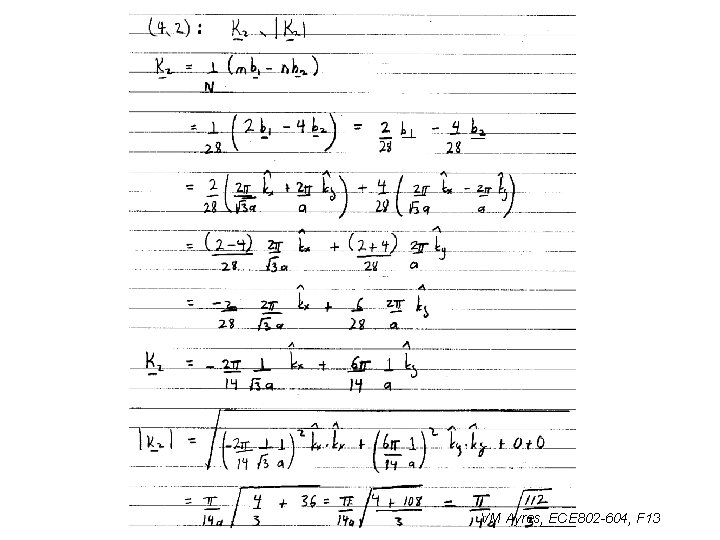 (4,2) : K₂, |K₂|
K₂ = 1/N (mb₁ - nb₂)
= 1/28 (2b₁ - 4b₂) = 2/28 b₁ - 4/28 b₂
= 2/28 (2π/√3a k̂x + 2π/a k̂y) + 4/28 (2π/√3a k̂x - 2π/a k̂y)
= (2-4)/28 2π/√3a k̂x + (2+4)/28 2π/a k̂y
= -2/28 2π/√3a k̂x + 6/28 2π/a k̂y
K₂ = - 2π/14 1/√3a k̂x + 6π/14 1/a k̂y
|K₂| = √((-2π/14 1/√3 1/a)² k̂x·k̂x + (6π/14 1/a)² k̂y·k̂y + 0+0)
= π/14a √(4/3 + 36) = π/14a √((4+108)/3) = π/14a √(112/3)
VM Ayres, ECE802-604, F13